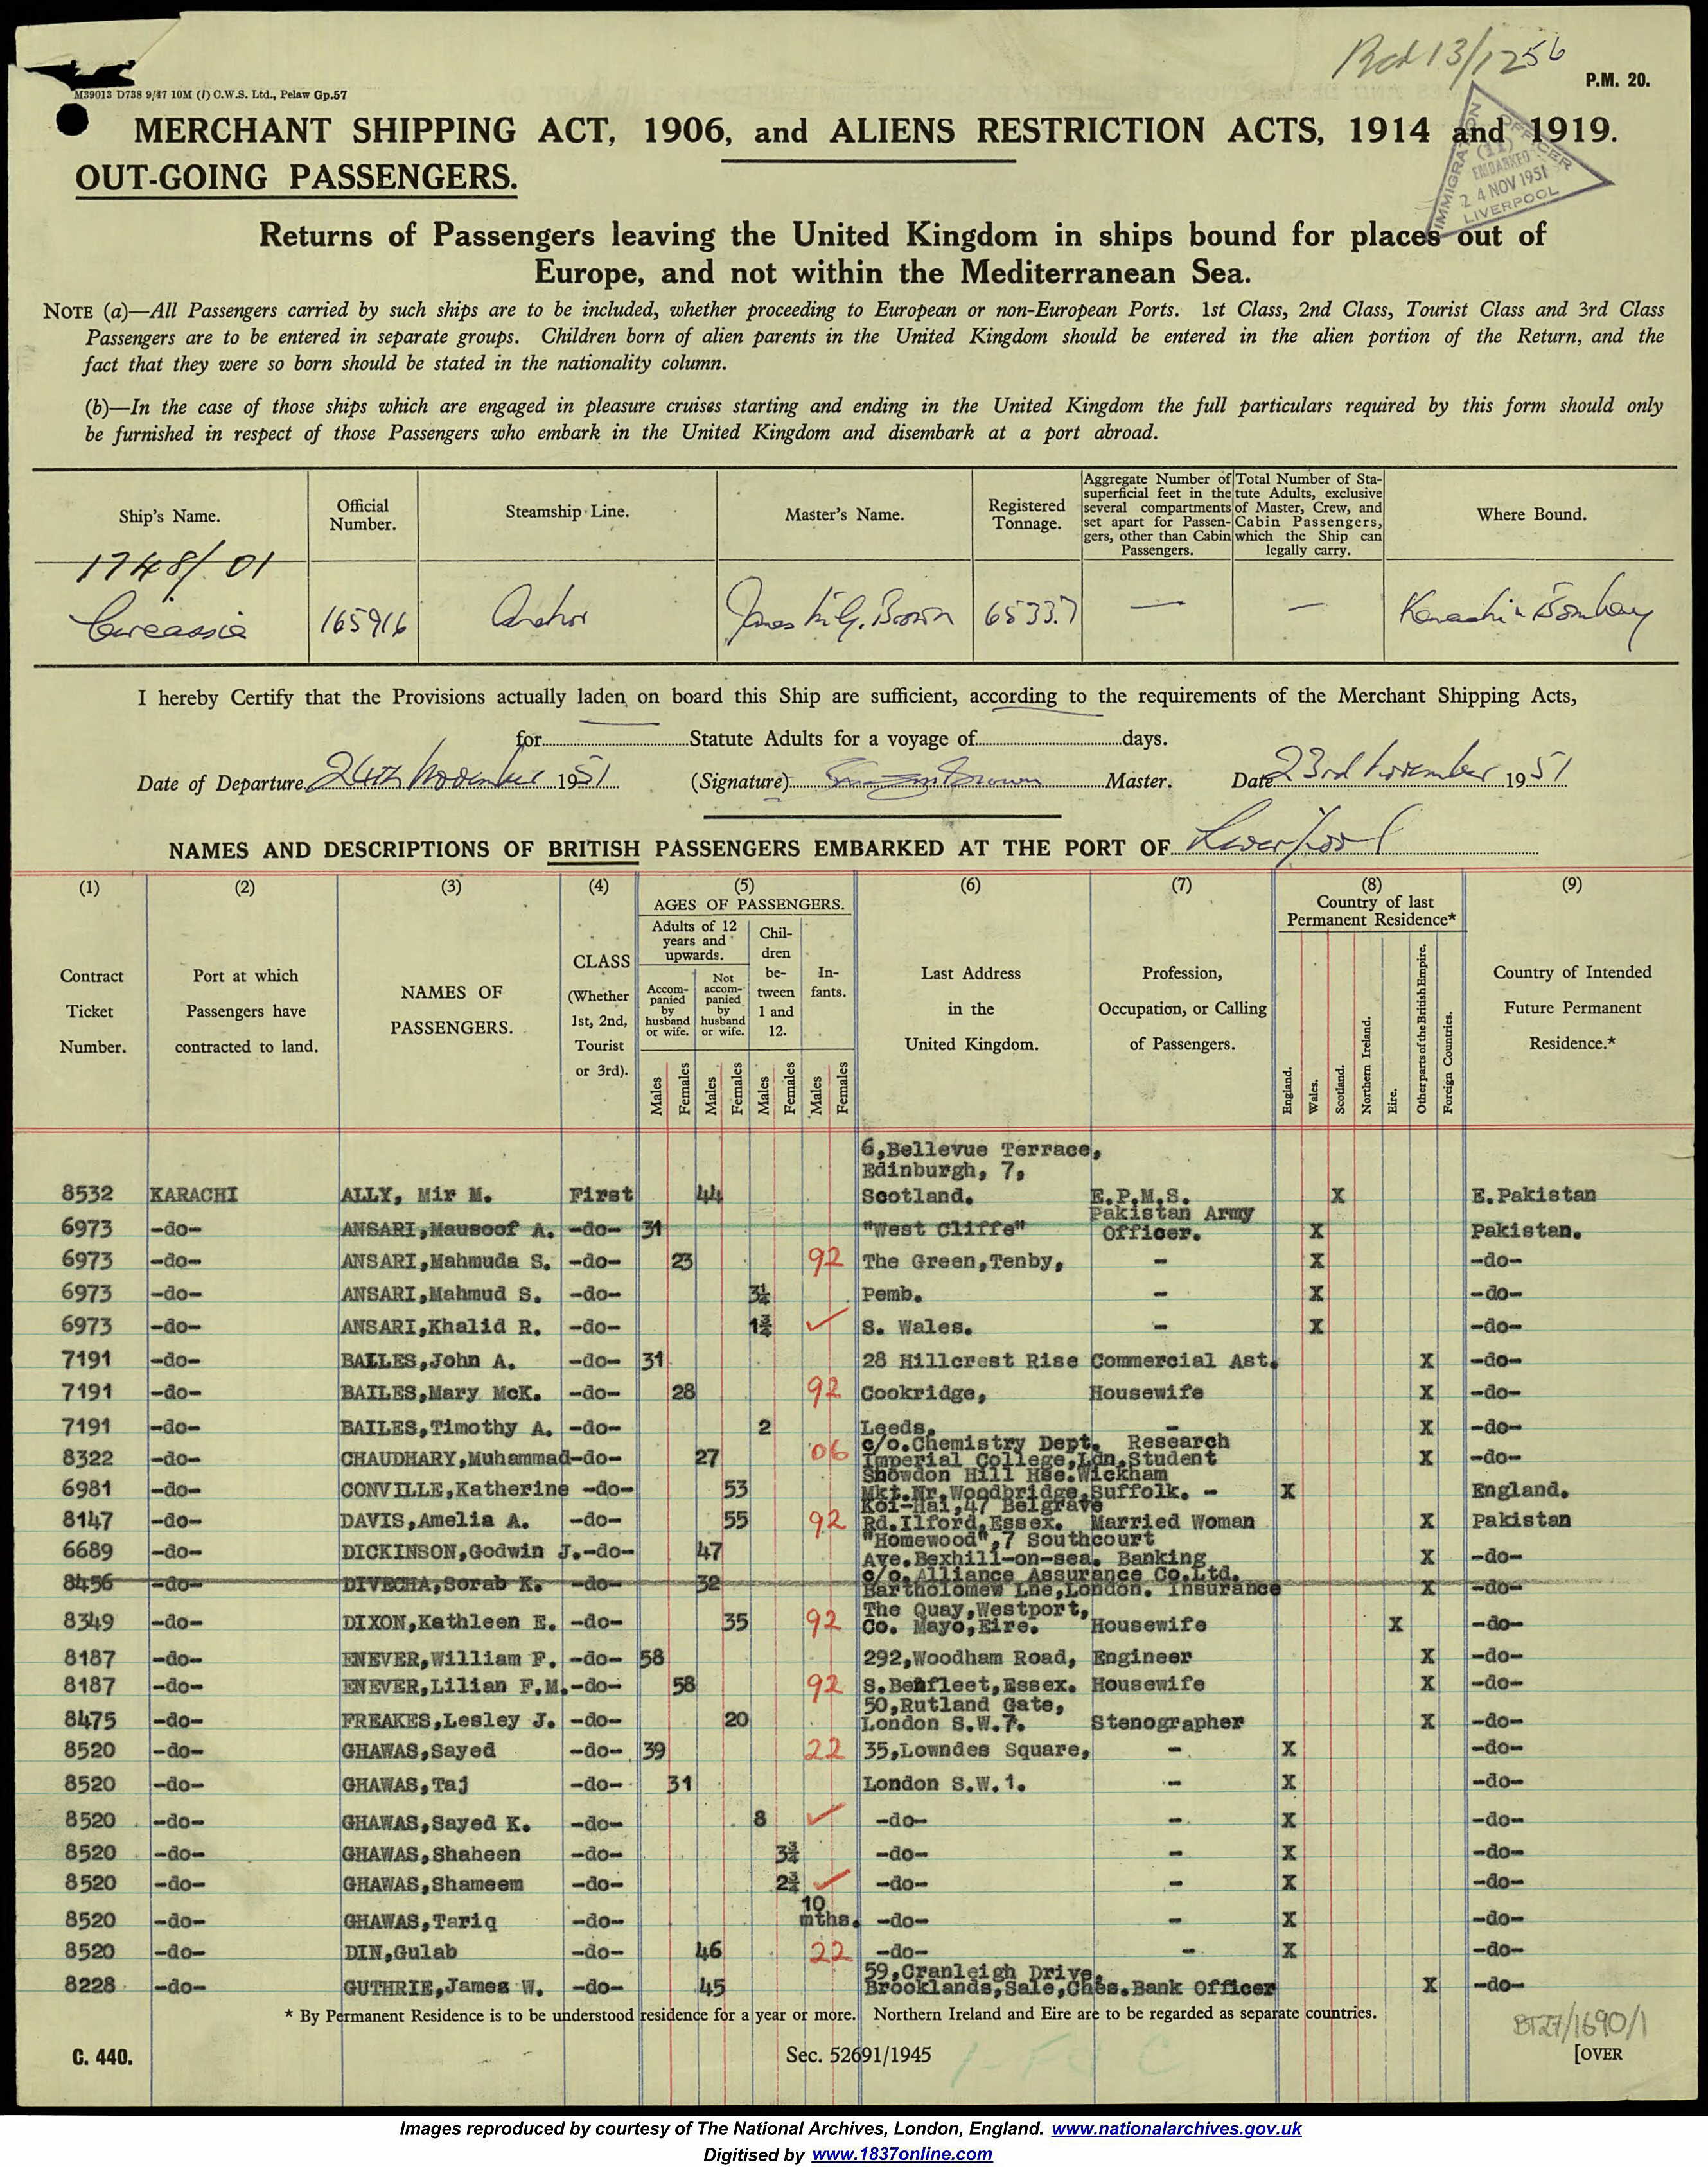 Rcd 13/12 56
P.M. 20.
M39013 D738 9/47 10M (/) C.W.S. Ltd., Pelaw Gp.57
MERCHANT SHIPPING ACT, 1906, and ALIENS RESTRICTION ACTS, 1914 and 1919.
IMMIGRATION OFFICER
(11)
EMBARKED
24 NOV 1951
LIVERPOOL
OUT-GOING PASSENGERS.
Returns of Passengers leaving the United Kingdom in ships bound for places out of
Europe, and not within the Mediterranean Sea.
NOTE (a)—All Passengers carried by such ships are to be included, whether proceeding to European or non-European Ports. 1st Class, 2nd Class, Tourist Class and 3rd Class
Passengers are to be entered in separate groups. Children born of alien parents in the United Kingdom should be entered in the alien portion of the Return, and the
fact that they were so born should be stated in the nationality column.
(b)—In the case of those ships which are engaged in pleasure cruises starting and ending in the United Kingdom the full particulars required by this form should only
be furnished in respect of those Passengers who embark in the United Kingdom and disembark at a port abroad.
Ship's Name.
Official Number.
Steamship Line.
Master's Name.
Registered Tonnage.
Aggregate Number of superficial feet in the several compartments set apart for Passengers, other than Cabin Passengers.
Total Number of Statute Adults, exclusive of Master, Crew, and Cabin Passengers, which the Ship can legally carry.
Where Bound.
1748/01
Circassia 165916 Anchor James Brown 6533.7 — — Karachi & Bombay
I hereby Certify that the Provisions actually laden on board this Ship are sufficient, according to the requirements of the Merchant Shipping Acts,
for Statute Adults for a voyage of days.
Date of Departure 24th November 1951 (Signature) Brown Master. Date 23rd November 1951
NAMES AND DESCRIPTIONS OF BRITISH PASSENGERS EMBARKED AT THE PORT OF Liverpool
(1) (2) (3) (4) (5) (6) (7) (8) (9)
Contract Ticket Number.
Port at which Passengers have contracted to land.
NAMES OF PASSENGERS.
CLASS (Whether 1st, 2nd, Tourist or 3rd).
AGES OF PASSENGERS.
Adults of 12 years and upwards.
Accompanied by husband or wife.
Not accompanied by husband or wife.
Children between 1 and 12.
Infants.
Males Females Males Females Males Females Males Females
Last Address in the United Kingdom.
Profession, Occupation, or Calling of Passengers.
Country of last Permanent Residence*
England. Wales. Scotland. Northern Ireland. Eire. Other parts of the British Empire. Foreign Countries.
Country of Intended Future Permanent Residence.*
6,Bellevue Terrace,
Edinburgh, 7,
8532 KARACHI ALLY, Mir M. First 44 Scotland. E.P.M.S. X E.Pakistan
Pakistan Army
6973 -do- ANSARI,Mausoof A. -do- 31 "West Cliffe" Officer. X Pakistan.
6973 -do- ANSARI,Mahmuda S. -do- 23 92 The Green,Tenby, - X -do-
6973 -do- ANSARI,Mahmud S. -do- 3¼ Pemb. - X -do-
6973 -do- ANSARI,Khalid R. -do- 1¾ ✓ S. Wales. - X -do-
7191 -do- BAILES,John A. -do- 31 28 Hillcrest Rise Commercial Ast. X -do-
7191 -do- BAILES,Mary McK. -do- 28 92 Cookridge, Housewife X -do-
7191 -do- BAILES,Timothy A. -do- 2 Leeds. - X -do-
c/o.Chemistry Dept. Research
8322 -do- CHAUDHARY,Muhammad -do- 27 06 Imperial College,Ldn.Student X -do-
Snowdon Hill Hse.Wickham
6981 -do- CONVILLE,Katherine -do- 53 Mkt.Nr.Woodbridge,Suffolk. - X England.
Koi-Hai,47 Belgrave
8147 -do- DAVIS,Amelia A. -do- 55 92 Rd.Ilford,Essex. Married Woman X Pakistan
"Homewood",7 Southcourt
6689 -do- DICKINSON,Godwin J. -do- 47 Ave.Bexhill-on-sea. Banking X -do-
c/o.Alliance Assurance Co.Ltd.
8456 -do- DIVECHA,Sorab K. -do- 32 Bartholomew Lne,London. Insurance X -do-
The Quay,Westport,
8349 -do- DIXON,Kathleen E. -do- 35 92 Co. Mayo,Eire. Housewife X -do-
8187 -do- ENEVER,William F. -do- 58 292,Woodham Road, Engineer X -do-
8187 -do- ENEVER,Lilian F.M. -do- 58 92 S.Benfleet,Essex. Housewife X -do-
50,Rutland Gate,
8475 -do- FREAKES,Lesley J. -do- 20 London S.W.7. Stenographer X -do-
8520 -do- GHAWAS,Sayed -do- 39 22 35,Lowndes Square, - X -do-
8520 -do- GHAWAS,Taj -do- 31 London S.W.1. - X -do-
8520 -do- GHAWAS,Sayed K. -do- 8 ✓ -do- - X -do-
8520 -do- GHAWAS,Shaheen -do- 3¾ -do- - X -do-
8520 -do- GHAWAS,Shameem -do- 2¾ ✓ -do- - X -do-
8520 -do- GHAWAS,Tariq -do- 10 mths. -do- - X -do-
8520 -do- DIN,Gulab -do- 46 22 -do- - X -do-
59,Cranleigh Drive,
8228 -do- GUTHRIE,James W. -do- 45 Brooklands,Sale,Ches.Bank Officer X -do-
* By Permanent Residence is to be understood residence for a year or more. Northern Ireland and Eire are to be regarded as separate countries.
BT27/1690/1
C. 440.
Sec. 52691/1945
[OVER
Images reproduced by courtesy of The National Archives, London, England. www.nationalarchives.gov.uk
Digitised by www.1837online.com